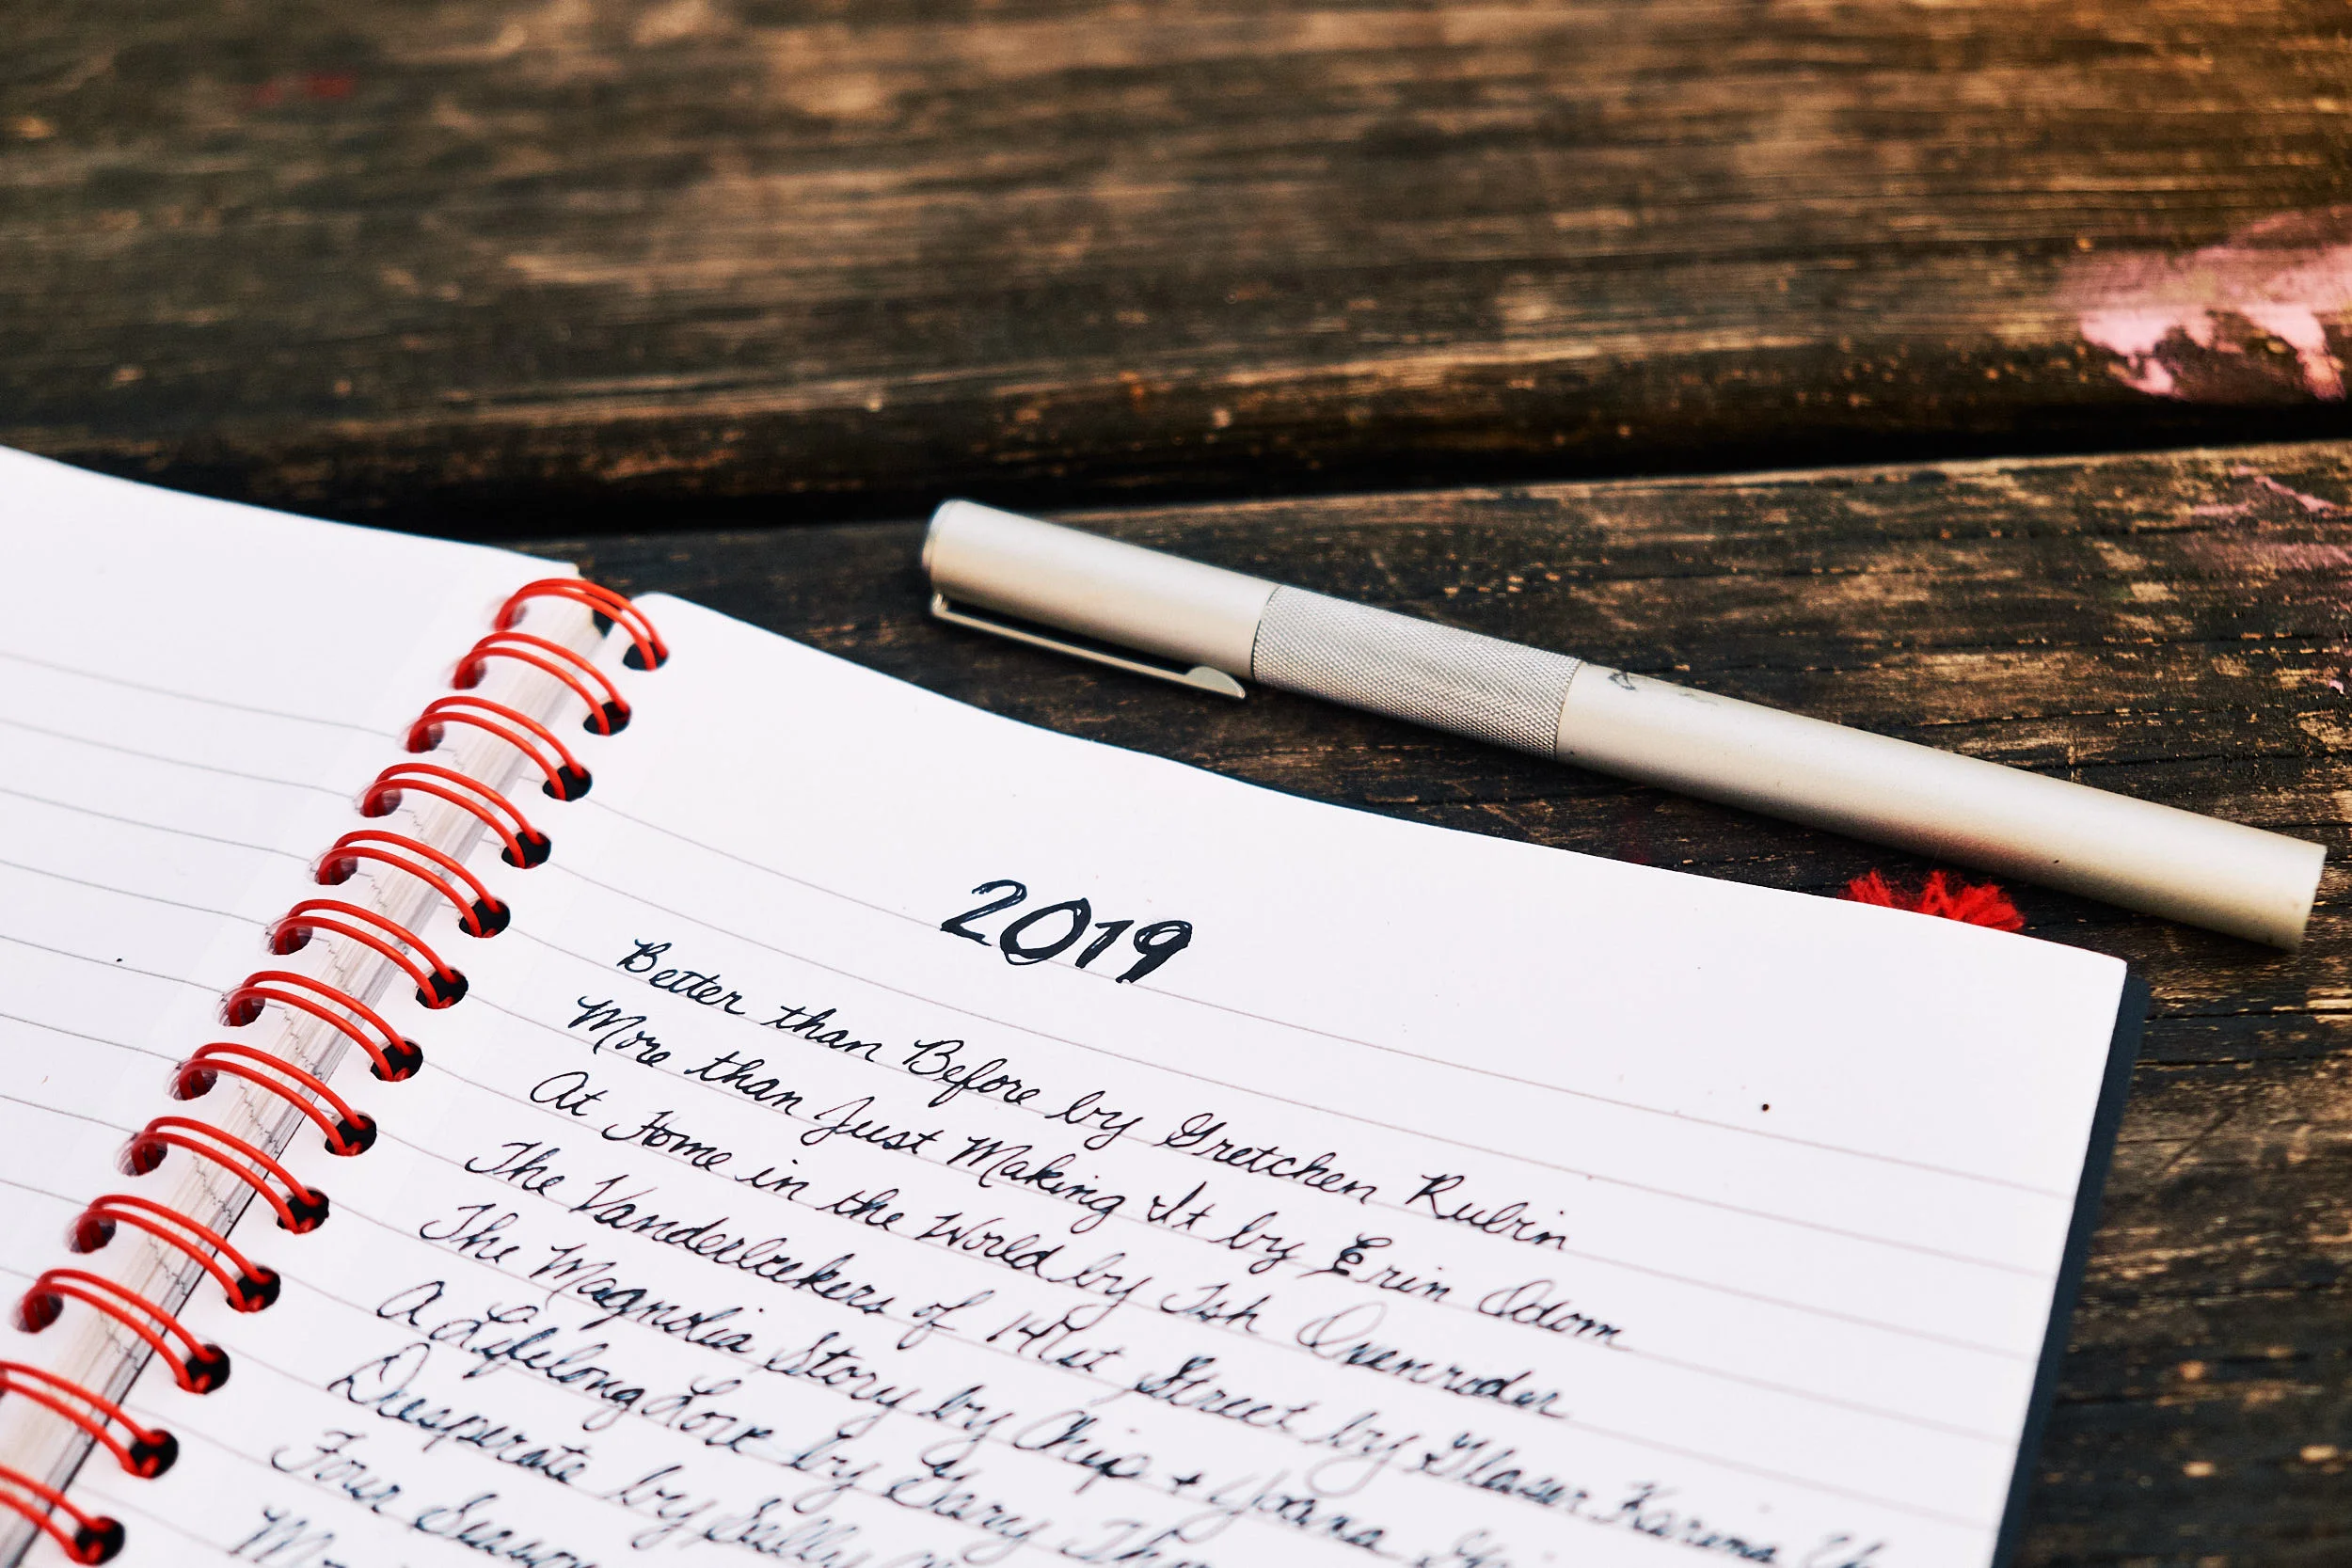 2019
Better than Before by Gretchen Rubin
More than Just Making It by Erin Odom
At Home in the World by Tsh Oxenreider
The Vanderbeekers of 141st Street by Glaser Karina
The Magnolia Story by Chip + Joana
A Lifelong Love by Gary
Desperate by Sally
Four